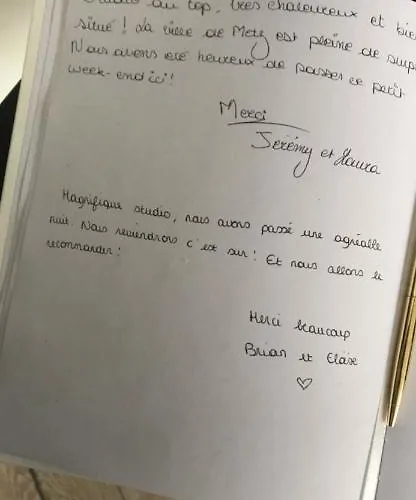 Studio au top, très chaleureux et bien
situé ! La ville de Metz est pleine de surp
Nous avons été heureux de passer ce petit
week-end ici !
Merci
Jérémy et Laura
Magnifique studio, nous avons passé une agréable
nuit. Nous reviendrons c'est sur ! Et nous allons le
recommander !
Merci beaucoup
Brian et Elise
♡